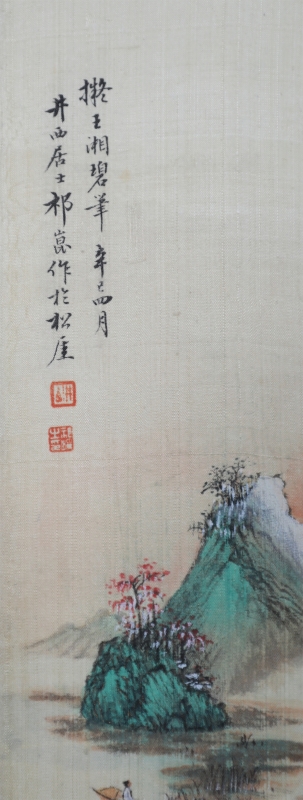 擬王湘碧筆辛巳四月
井西居士祁崑作於松崖